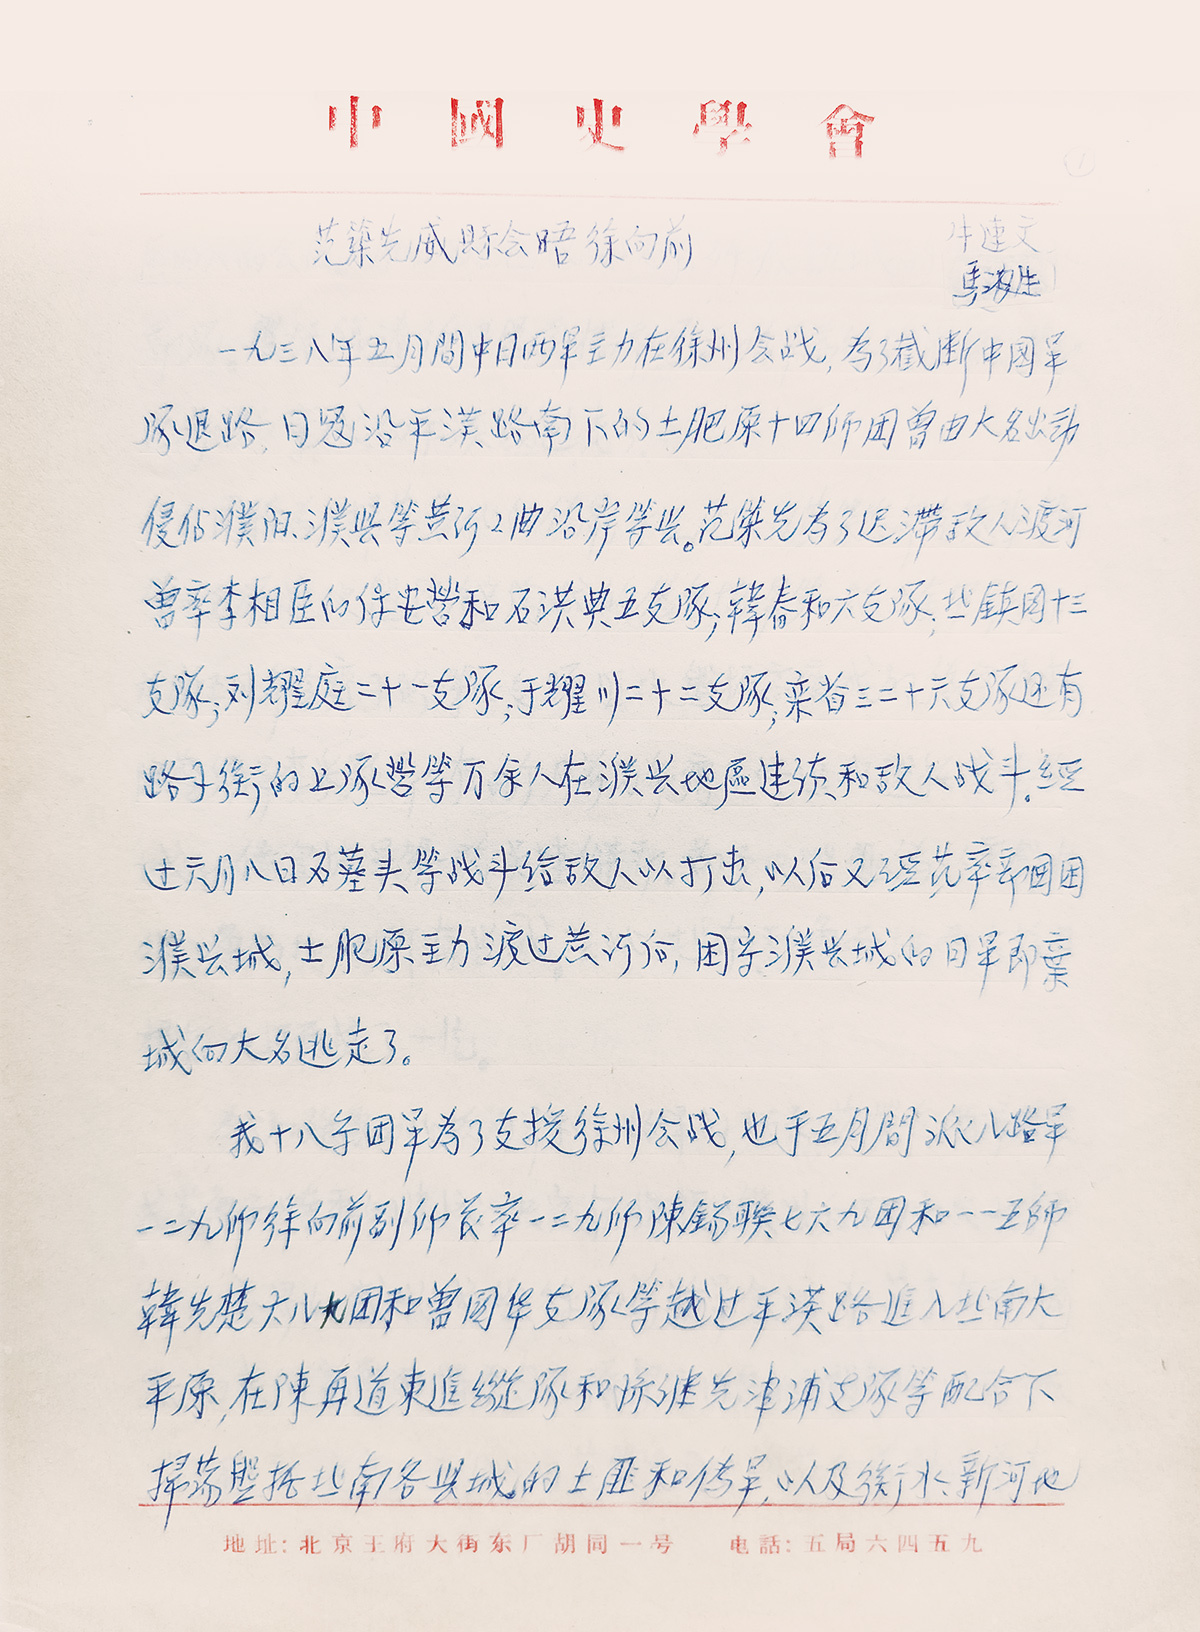 中國史學會
范築先威縣会晤徐向前
牛連文
馬波生
一九三八年五月間中日两軍主力在徐州会战,為了截断中國軍
隊退路,日寇沿平漢路南下的土肥原十四师团曾由大名出动
侵佔濮阳、濮县等黄河以北沿岸等县。范築先為了迟滞敌人渡河
曾率李相臣的保安营和石洪典五支隊;韓春和六支隊;   十三
支隊;刘耀庭二十一支隊;于耀川二十二支隊;栾省三二十六支隊还有
路子衡的 隊营等万余人在濮县地區連续和敌人战斗。经
过六月八日石墓头等战斗给敌人以打击,以后又经范率部圍困
濮县城,土肥原主力渡过黄河后,困守濮县城的日軍即棄
城向大名逃走了。
我十八集团軍為了支援徐州会战,也于五月間派八路軍
一二九师徐向前副师長率一二九师陳錫聯七六九团和一一五師
韓先楚六八九团和曾国华支隊等越过平漢路進入冀南大
平原,在陳再道東進縱隊和孙继先津浦支隊等配合下
掃荡盤据冀南各县城的土匪和偽軍,以及衡水、新河地
地址:北京王府大街东厂胡同一号 电話:五局六四五九